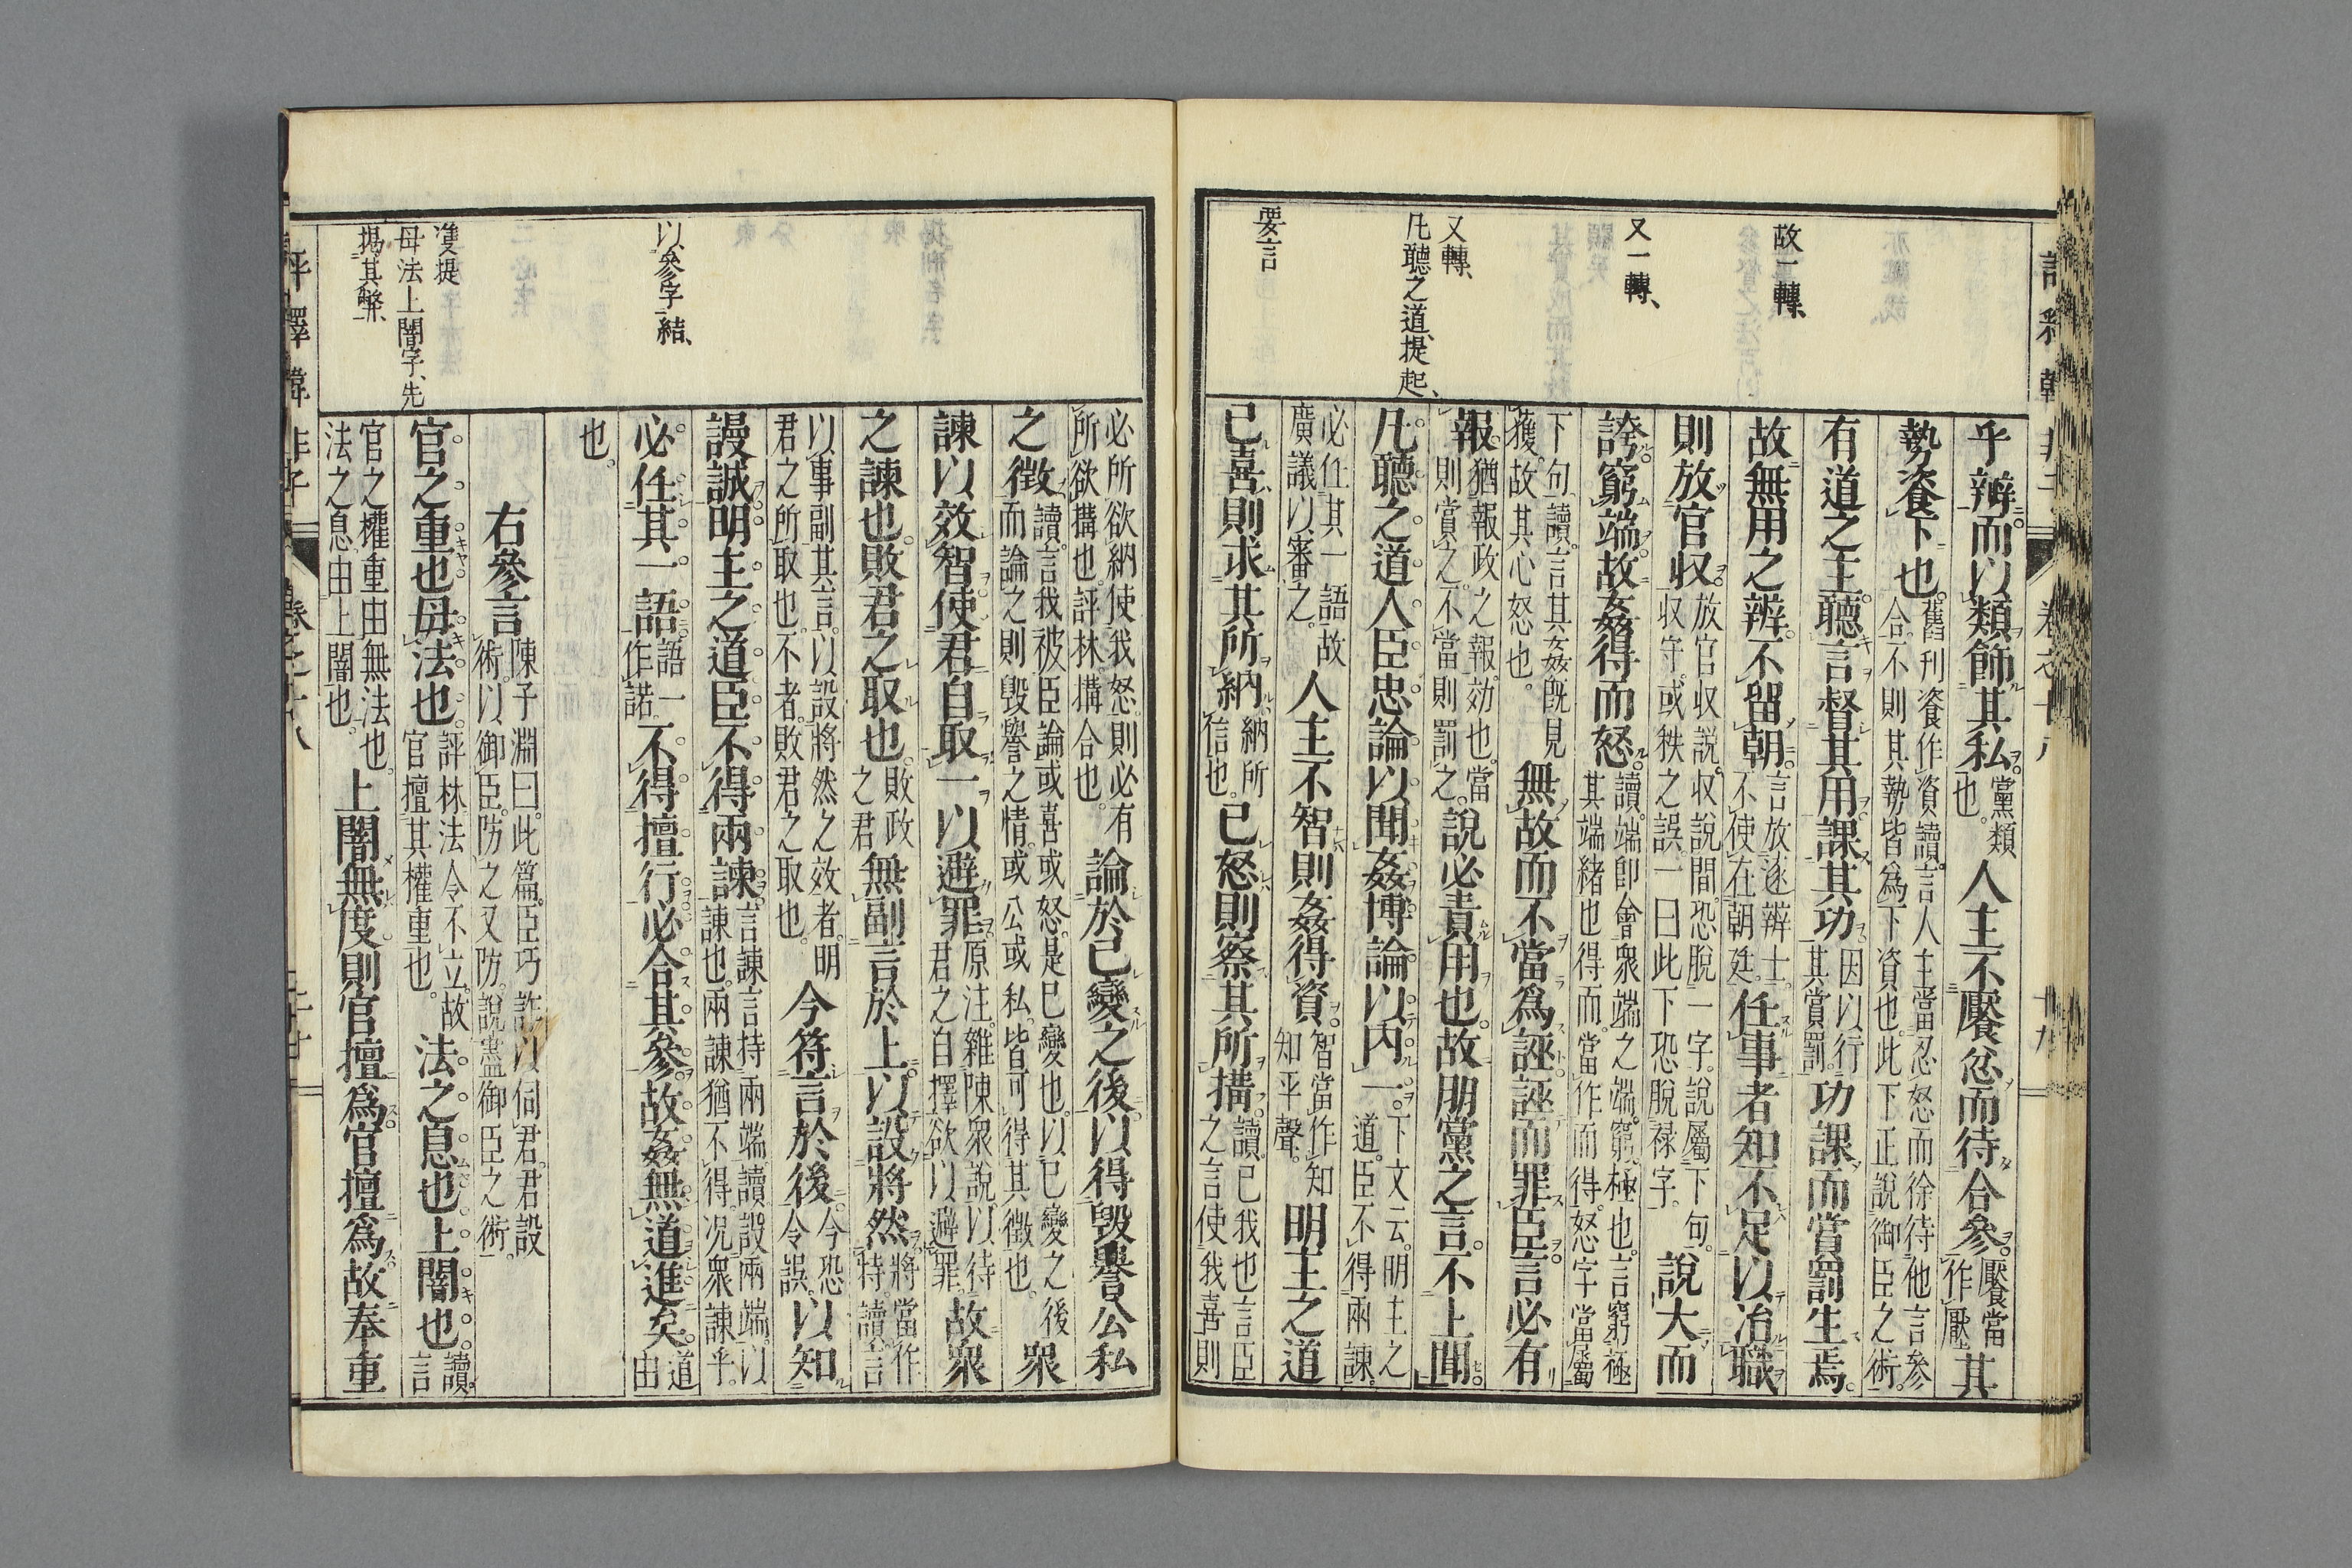 故一轉、
又一轉、
又轉、
凡聽之道、提起、
要言
乎辯而以類飾其私黨類也。人主不饜忿而待合參饜當作厭其
勢資下也。舊刊資作資讀。言人主當忍怒而徐待他言參合。不則其勢皆爲下資也。此下正說御臣之術。
有道之主聽言督其用課其功因以行其賞罰。功課而賞罰生焉。
故無用之辯不留朝。言放逐辯士。不使在朝廷。任事者知不足以治職
則放官收放官收說。收說間。恐脫一字。說屬下句。收守。或秩之誤。一曰此下恐脫祿字。說大而
誇窮端故姦得而怒。讀。端卽會衆端之端。窮極也。言窮極其端緒也得而。當作而得。怒字當屬
下句讀。言其姦旣見獲。故其心怒也。無故而不當爲誣誣而罪臣言必有
報猶報政之報。効也。當則賞之。不當則罰之。說必責用也。故朋黨之言不上聞。
凡聽之道人臣忠論以聞姦博論以内一。下文云。明主之道。臣不得兩諫。
必任其一語故廣議以審之。人主不智則姦得資。智當作知知平聲。明主之道
已喜則求其所納納所信也。已怒則察其所搆。讀。已我也言臣之言使我喜則
以參字結、
雙提
毋法上闇字、先
揭其弊、
必所欲納使我怒則必有所欲搆也。評林搆合也。論於已變之後以得毀譽公私
之徵讀。言我被臣論或喜或怒。是已變也。以已變之後而論之則毀譽之情。或公或私。皆可得其徵也。衆
諫以效智使君自取一以避罪。原注。雖陳衆說。以待君之自擇欲以避罪。故衆
之諫也敗君之取也。敗政之君無副言於上以設將然將當作特讀言
以事副其言。以設將然之效者。明君之所取也。不者。敗君之取也。今符言於後今恐令誤。以知
謾誠明主之道臣不得兩諫言諫言持兩端讀設兩端。以諫也。兩諫猶不得。况衆諫乎。
必任其一語語一作諾不得擅行必合其參故姦無道進矣。道由
也。
右參言陳子淵曰。此篇。臣巧詐以伺君。君設術以御臣。防之又防。說盡御臣之術。
官之重也毋法也。評林法令不立。故官擅其權重也。法之息也上闇也。讀。言
官之權重由無法也。法之息。由上闇也。上闇無度則官擅爲官擅爲故奉重